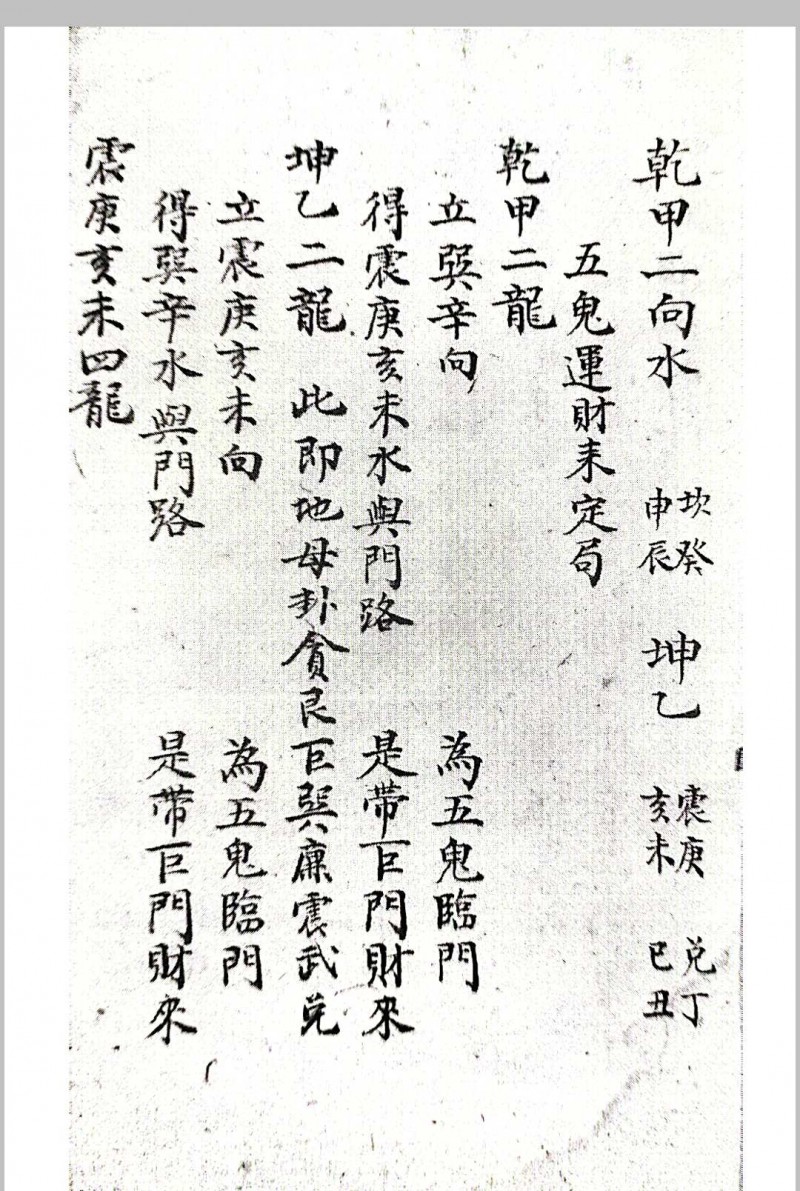 乾甲二向水 坎癸申辰 坤乙 震庚亥未 兌丁巳丑
五鬼運財来定局
乾甲二龍
立巽辛向 為五鬼臨門
得震庚亥未水與門路 是带巨門財來
坤乙二龍 此即地母卦貪艮巨巽廉震武兌
立震庚亥未向 為五鬼臨門
得巽辛水與門路 是带巨門財來
震庚亥未四龍